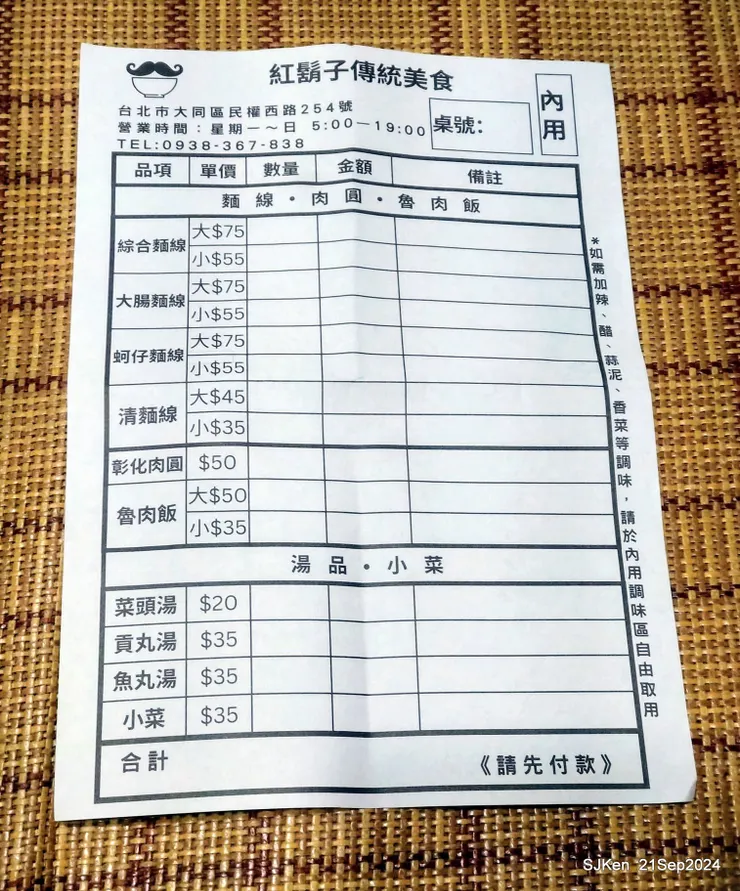 紅鬍子傳統美食
台北市大同區民權西路254號
營業時間：星期一～日 5:00—19:00
TEL:0938-367-838
桌號：
內用
品項 單價 數量 金額 備註
麵線・肉圓・魯肉飯
綜合麵線 大$75
小$55
大腸麵線 大$75
小$55
蚵仔麵線 大$75
小$55
清麵線 大$45
小$35
彰化肉圓 $50
魯肉飯 大$50
小$35
湯品・小菜
菜頭湯 $20
貢丸湯 $35
魚丸湯 $35
小菜 $35
合計 《請先付款》
*如需加辣、醋、蒜泥、香菜等調味，請於內用調味區自由取用
SJKen 21Sep2024